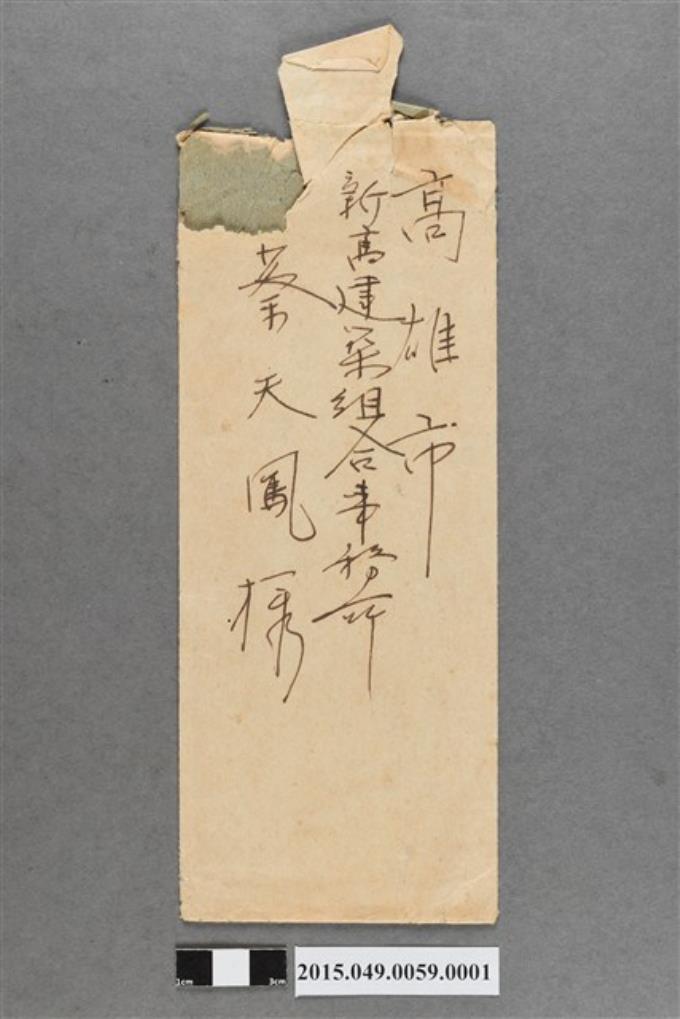 高雄市
新高建築組合事務所
蔡天鳳様
1cm 3cm
2015.049.0059.0001